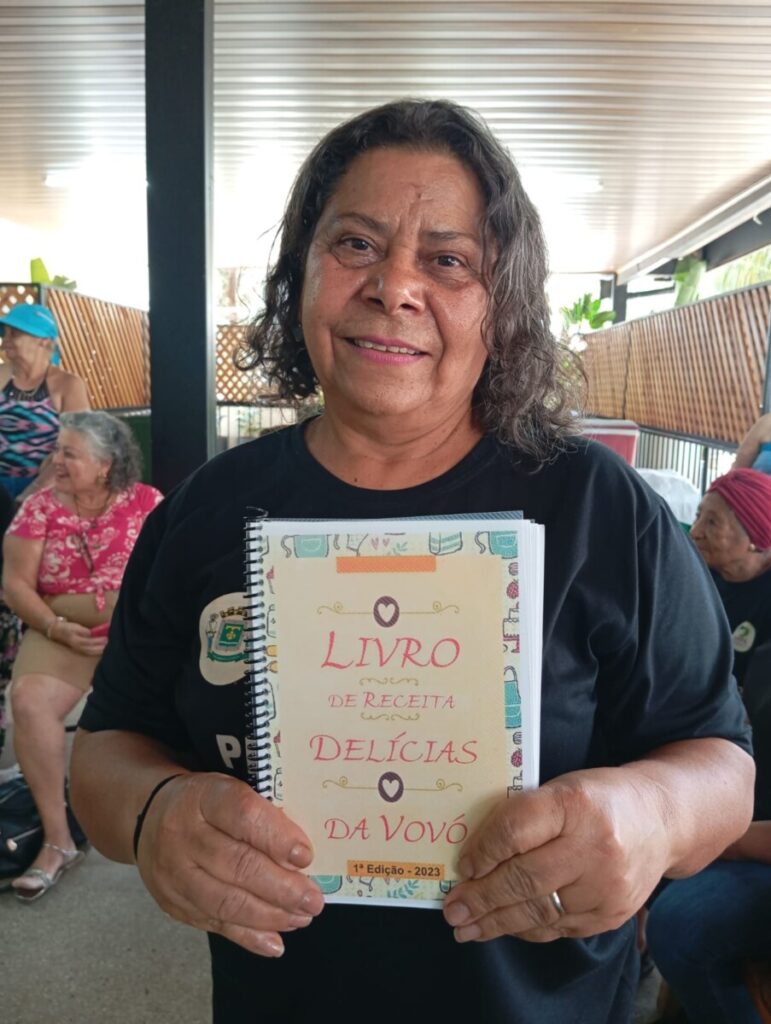 LIVRO
DE RECEITA
DELÍCIAS
DA VOVÓ
1ª Edição - 2023
P